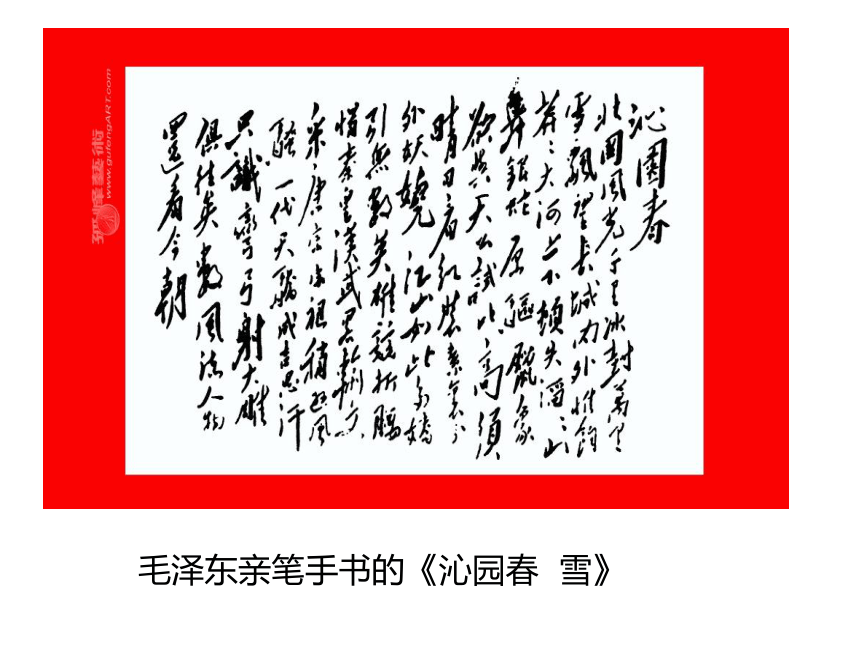 沁園春
北國風光千里冰封萬里
雪飄望長城內外惟餘
莽〻大河上下頓失滔〻山
舞銀蛇原驅臘象
欲與天公試比高須
晴日看紅裝素裹分
外妖嬈江山如此多嬌
引無數英雄競折腰
惜秦皇漢武略輸文
采唐宗宋祖稍遜風
騷一代天驕成吉思汗
只識彎弓射大雕
俱往矣數風流人物
還看今朝
www.gufengART.com
毛泽东亲笔手书的《沁园春 雪》